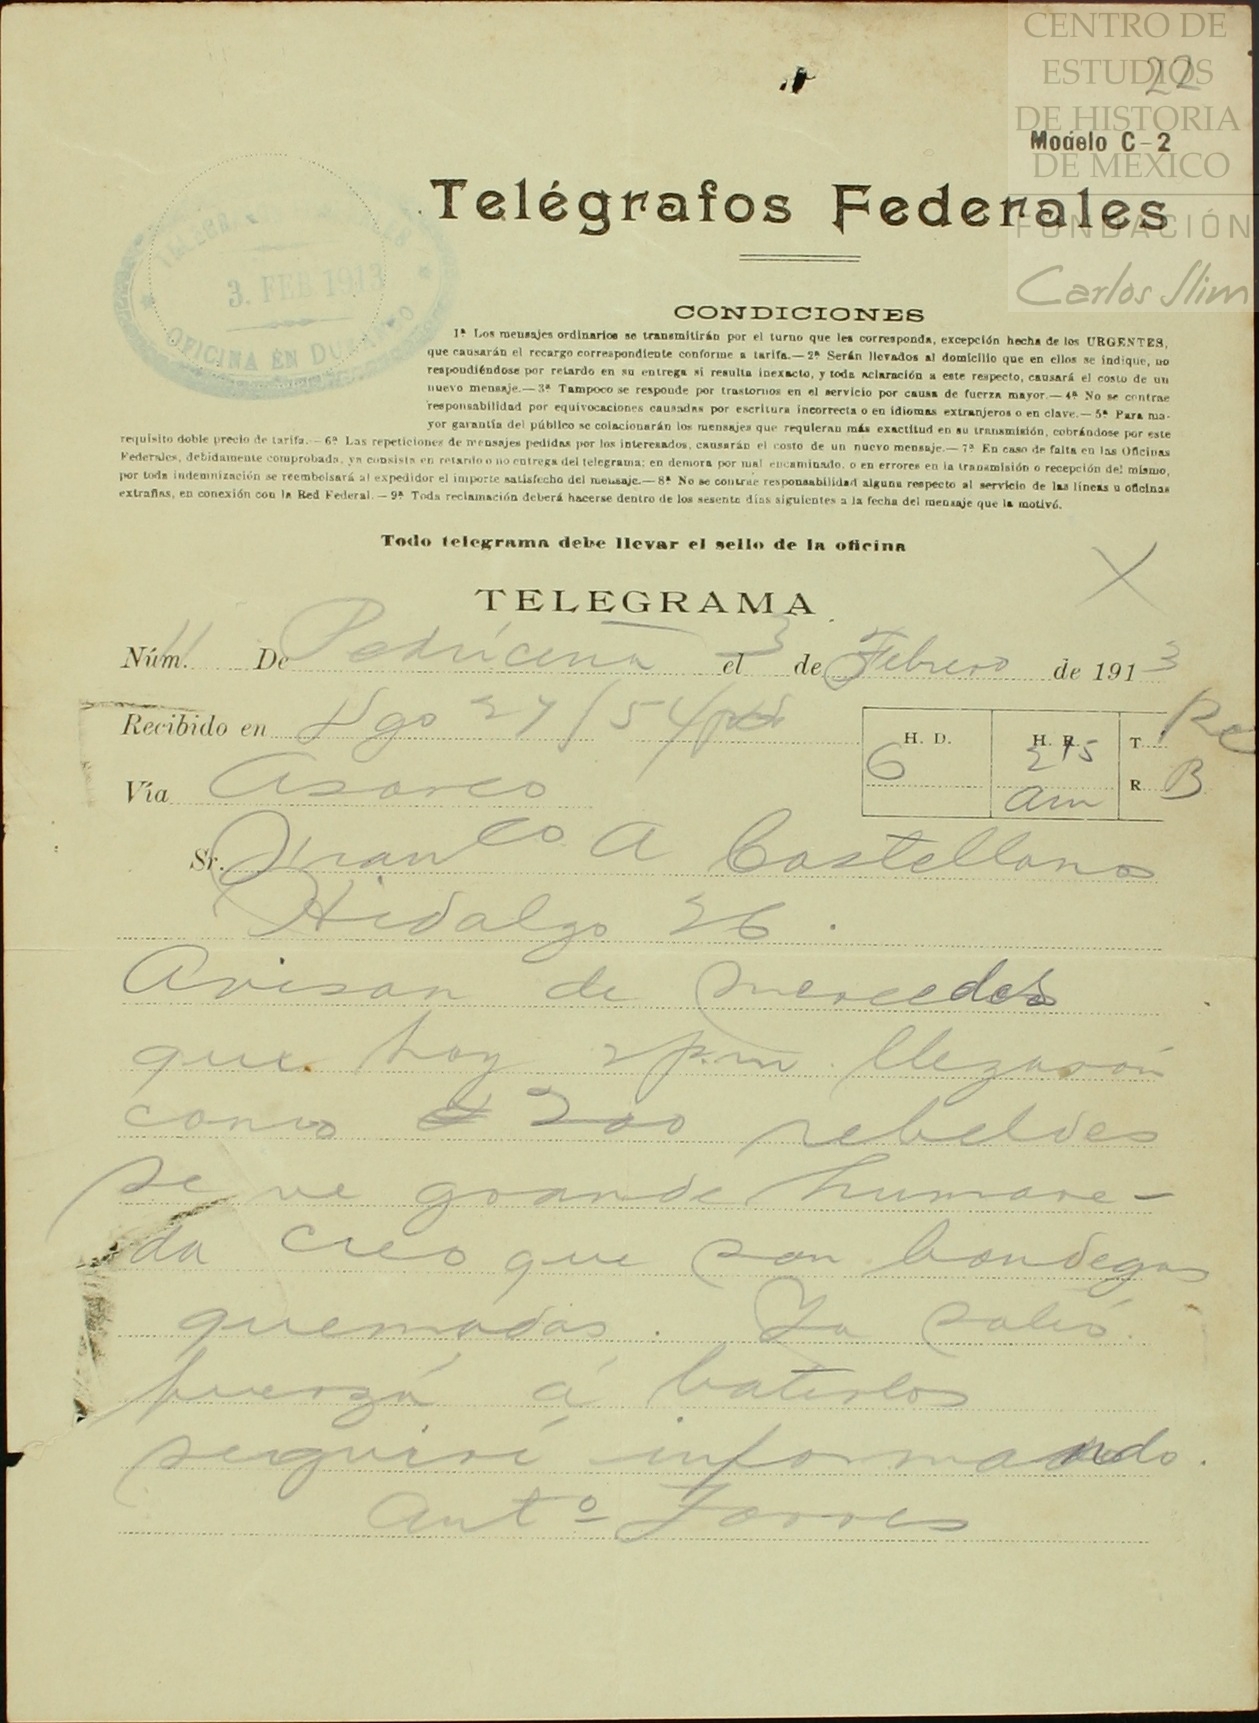 CENTRO DE
ESTUDIOS
DE HISTORIA
DE MEXICO
FUNDACIÓN
Carlos Slim
22
Modelo C-2
Telégrafos Federales
3. FEB 1913
OFICINA EN DURANGO
CONDICIONES
1ª Los mensajes ordinarios se transmitirán por el turno que les corresponda, excepción hecha de los URGENTES,
que causarán el recargo correspondiente conforme a tarifa.—2ª Serán llevados al domicilio que en ellos se indique, no
respondiéndose por retardo en su entrega si resulta inexacto, y toda aclaración a este respecto, causará el costo de un
nuevo mensaje.—3ª Tampoco se responde por trastornos en el servicio por causa de fuerza mayor.—4ª No se contrae
responsabilidad por equivocaciones causadas por escritura incorrecta o en idiomas extranjeros o en clave.—5ª Para ma-
yor garantía del público se colacionarán los mensajes que requieran más exactitud en su transmisión, cobrándose por este
requisito doble precio de tarifa.—6ª Las repeticiones de mensajes pedidas por los interesados, causarán el costo de un nuevo mensaje.—7ª En caso de falta en las Oficinas
Federales, debidamente comprobada, ya consista en retardo o no entrega del telegrama; en demora por mal encaminado, o en errores en la transmisión o recepción del mismo,
por toda indemnización se reembolsará al expedidor el importe satisfecho del mensaje.—8ª No se contrae responsabilidad alguna respecto al servicio de las líneas u oficinas
extrañas, en conexión con la Red Federal.—9ª Toda reclamación deberá hacerse dentro de los sesenta días siguientes a la fecha del mensaje que la motivó.
Todo telegrama debe llevar el sello de la oficina
TELEGRAMA
Núm. 11 De Pedriceña el 3 de Febrero de 1913
Recibido en Dgo 27/54
H. D. 6 H. R. 215 am T. Re R. B
Vía Asarco
Sr. Franco A Castellanos
Hidalgo 26.
Avisan de mercedes
que hoy 2 p.m. llegarón
como 200 rebeldes
se ve grande humare-
da creo que son bondegas
quemadas. Ya salió
fuerza á batirlos
seguiré informando.
Antº Torres